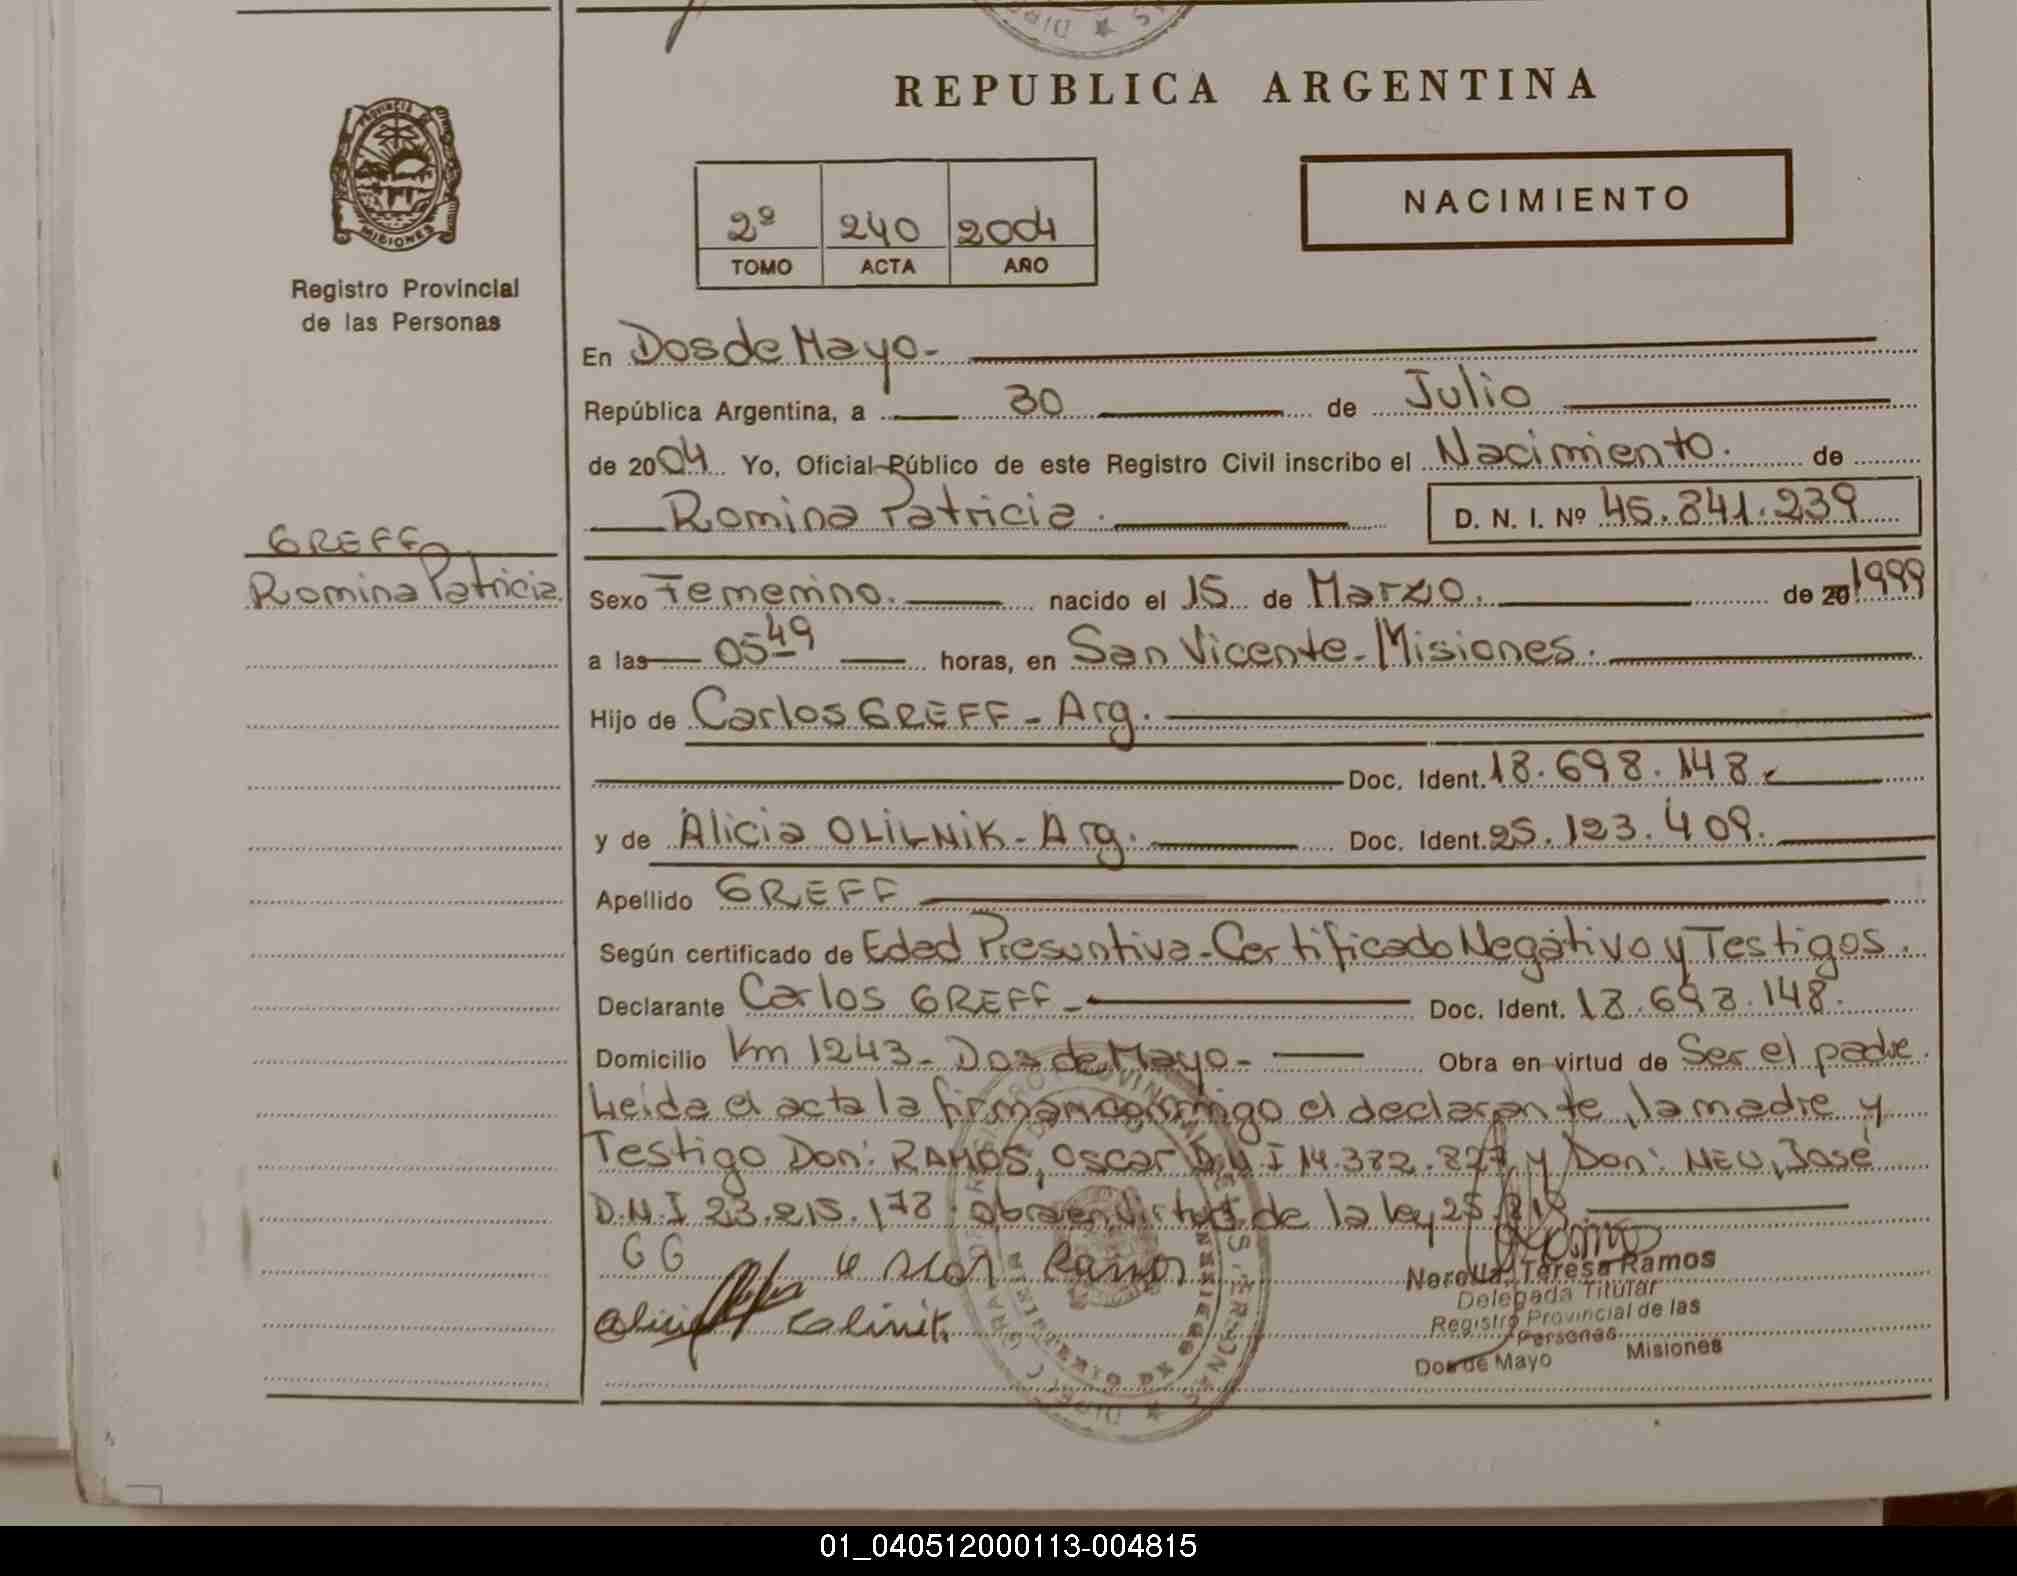 REPUBLICA ARGENTINA
PROVINCIA DE
MISIONES
Registro Provincial
de las Personas
2º 240 2004
TOMO ACTA AÑO
NACIMIENTO
En Dos de Mayo-
República Argentina, a 30 de Julio
de 2004 Yo, Oficial Público de este Registro Civil inscribo el Nacimiento. de
Romina Patricia. D. N. I. Nº 45.841.239
GREFF
Romina Patricia
Sexo Femenino. nacido el 15 de Marzo. de 20 1999
a las 05 49 horas, en San Vicente-Misiones.
Hijo de Carlos GREFF - Arg.
Doc. Ident. 18.698.148.
y de Alicia OLILNIK - Arg. Doc. Ident. 25.123.409.
Apellido GREFF
Según certificado de Edad Presuntiva-Certificado Negativo y Testigos.
Declarante Carlos GREFF- Doc. Ident. 18.698.148.
Domicilio Km 1243- Dos de Mayo- Obra en virtud de Ser el padre.
Leída el acta la firman conmigo el declarante, la madre y
Testigo Don: RAMOS, Oscar D.N.I 14.382.827 y Don: NEU, José
D.N.I 23.215.178. obra en virtud de la ley 25.819.
G G Oscar Ramos
Teresa Ramos
Delegada Titular
Registro Provincial de las
Personas
Dos de Mayo Misiones
01_040512000113-004815